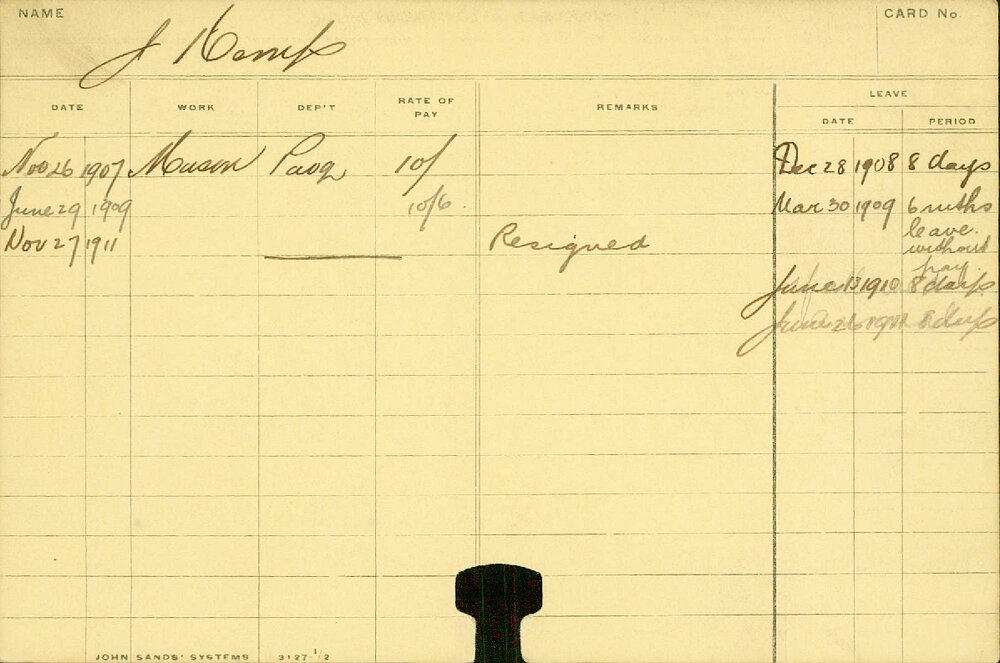 NAME CARD No.
J Kemp
LEAVE
DATE WORK DEP'T RATE OF PAY REMARKS DATE PERIOD
Nov 26 1907 Mason Pavg 10/ Dec 28 1908 8 days
June 29 1909 10/6 Mar 30 1909 6 mths
leave
without
pay.
Nov 27 1911 Resigned
June 13 1910 8 days
June 26 1911 8 days
JOHN SANDS' SYSTEMS 3127-1/2